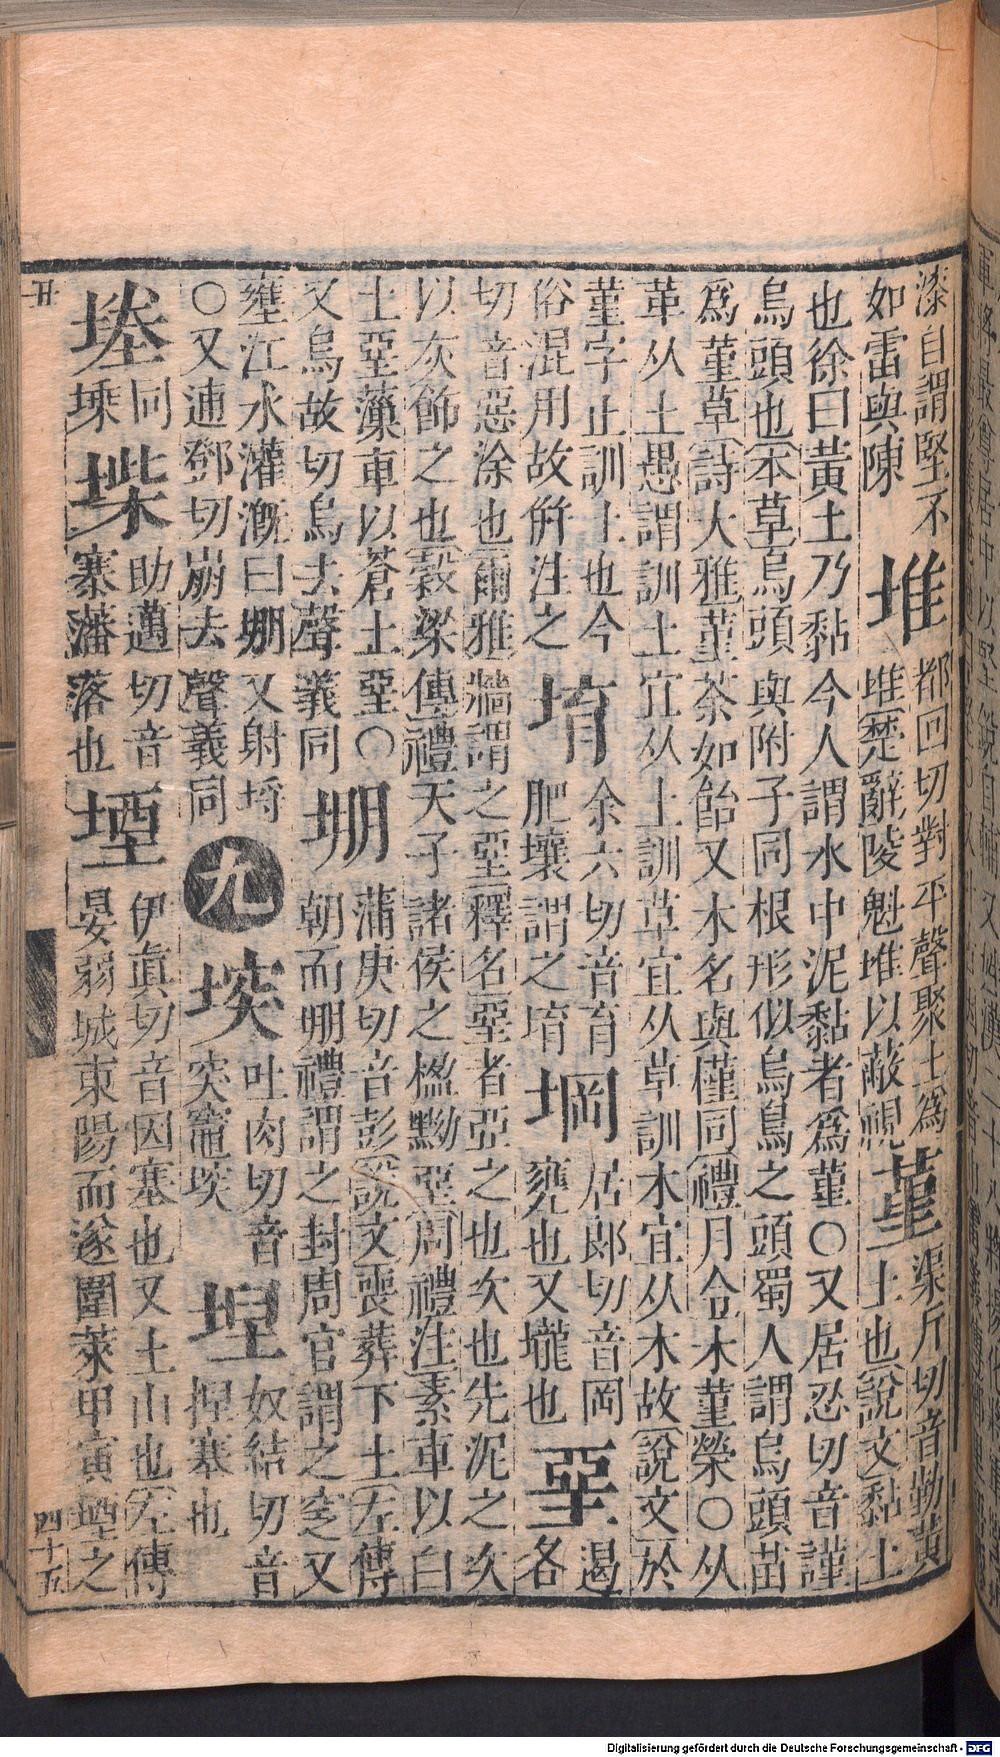 漆自謂堅不
如雷與陳
堆
都回切對平聲聚土爲
堆楚辭陵魁堆以蔽視
堇
渠斤切音勤黃
土也說文黏土
也徐曰黃土乃黏今人謂水中泥黏者爲堇○又居忍切音謹
烏頭也本草烏頭與附子同根形似烏鳥之頭蜀人謂烏頭苗
爲堇草詩大雅堇荼如飴又木名與槿同禮月令木堇榮○从
革从土愚謂訓土宜从土訓草宜从草訓木宜从木故說文於
堇字止訓土也今
俗混用故倂注之
堉
余六切音育
肥壤謂之堉
堈
居郎切音岡
甕也又壠也
堊
遏
各
切音惡涂也爾雅牆謂之堊釋名堊者亞之也次也先泥之次
以灰飾之也穀梁傳禮天子諸侯之楹黝堊周禮注素車以白
土堊薻車以蒼土堊○說文
又烏故切烏去聲義同
堋
蒲庚切音彭說文喪葬下土左傳
朝而堋禮謂之封周官謂之窆又
壅江水灌漑曰堋又射埒
○又逋鄧切崩去聲義同
九
堗
吐肉切音
突竈堗
埕
奴結切音
捏塞也
堘
同
堘
助邁切音
寨藩落也
堙
伊眞切音因塞也又土山也左傳
晏弱城東陽而遂圍萊甲寅堙之
丑
四十五
Digitalisierung gefördert durch die Deutsche Forschungsgemeinschaft - DFG